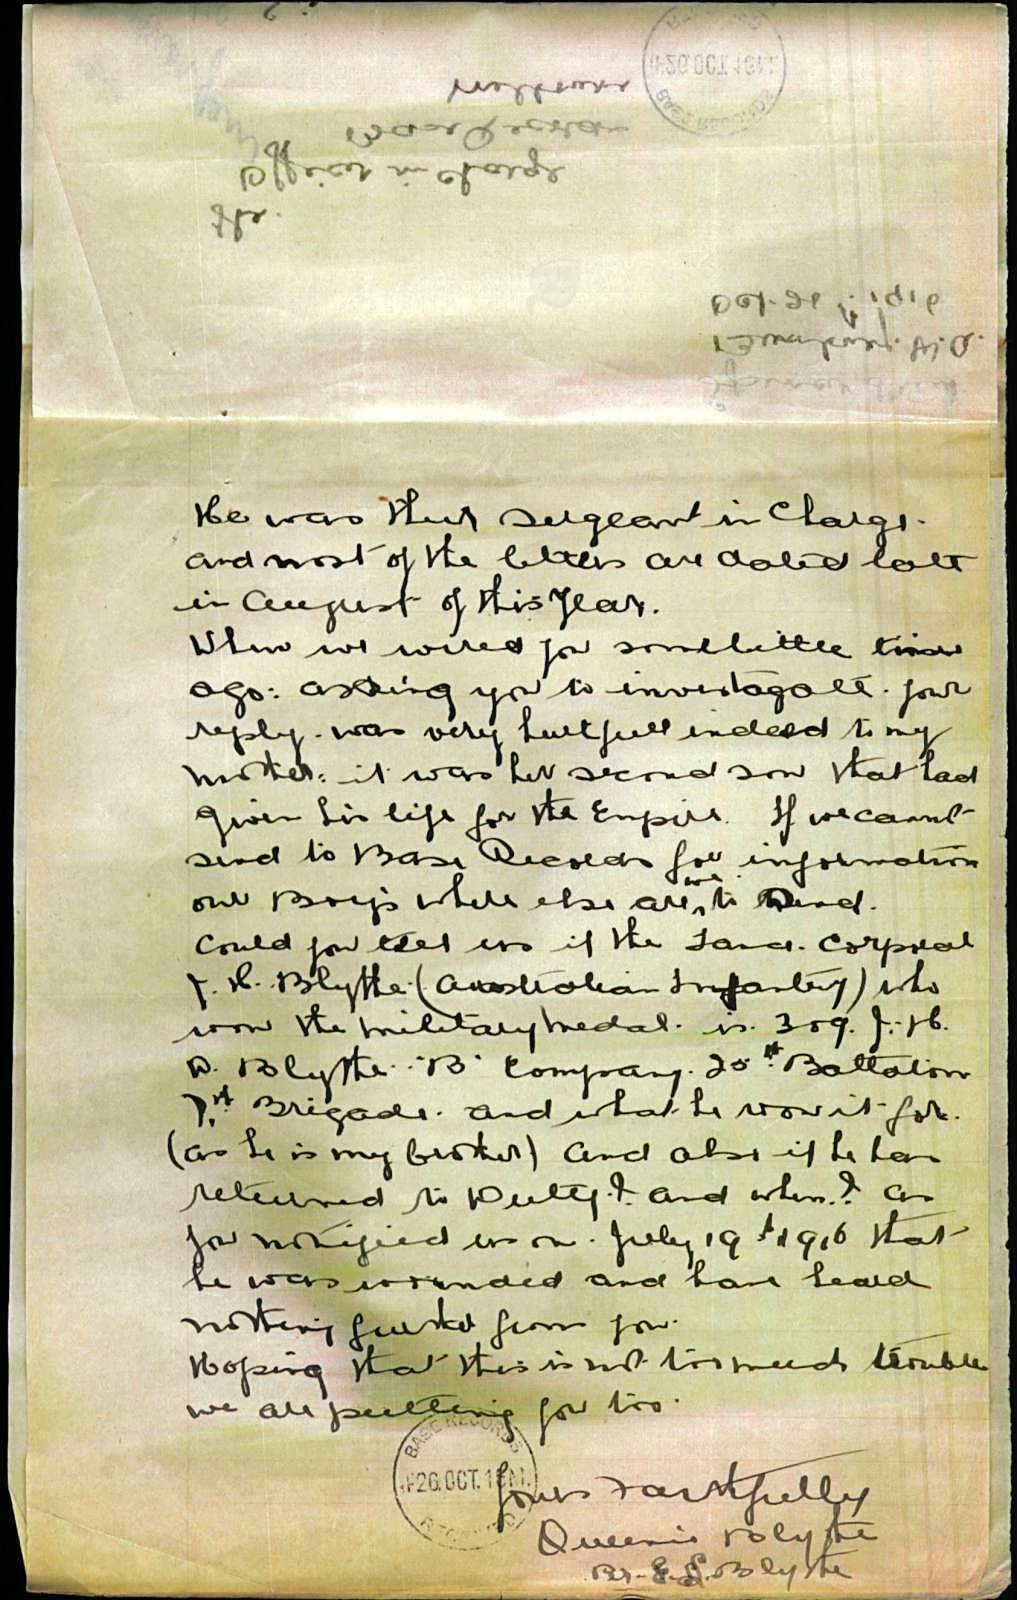 The
Officer in Charge
Base Records
Melbourne
Oct. 26th. 1916
26.OCT.16
BASE RECORDS
He was their sergeant in Charge.
and most of the letters are dated late
in August of this Year.
When we wired you some little time
ago: asking you to investagate. your
reply. was very hurtfull indeed to my
mother: it was her second son that had
given his life for the Empire. If we cannot
send to Base Records for information
our Boys where else are we to send.
Could you tell us if the Lance. Corporal
J. H. Blythe (Australian Infantry) who
won the military medal. is. 309. J. H.
D. Blythe. "B" Company. 25th Battalion
7th Brigade. and what he won it for.
(as he is my brother) and also if he has
returned to Dutty.? and when.? as
you notified us on. July 19th 1916 that
he was wounded and have heard
nothing further from you.
Hoping that this is not too much trouble
we are putting you too.
BASE RECORDS
26.OCT.16
Yours Faithfully
Queenie Blythe
Blythe